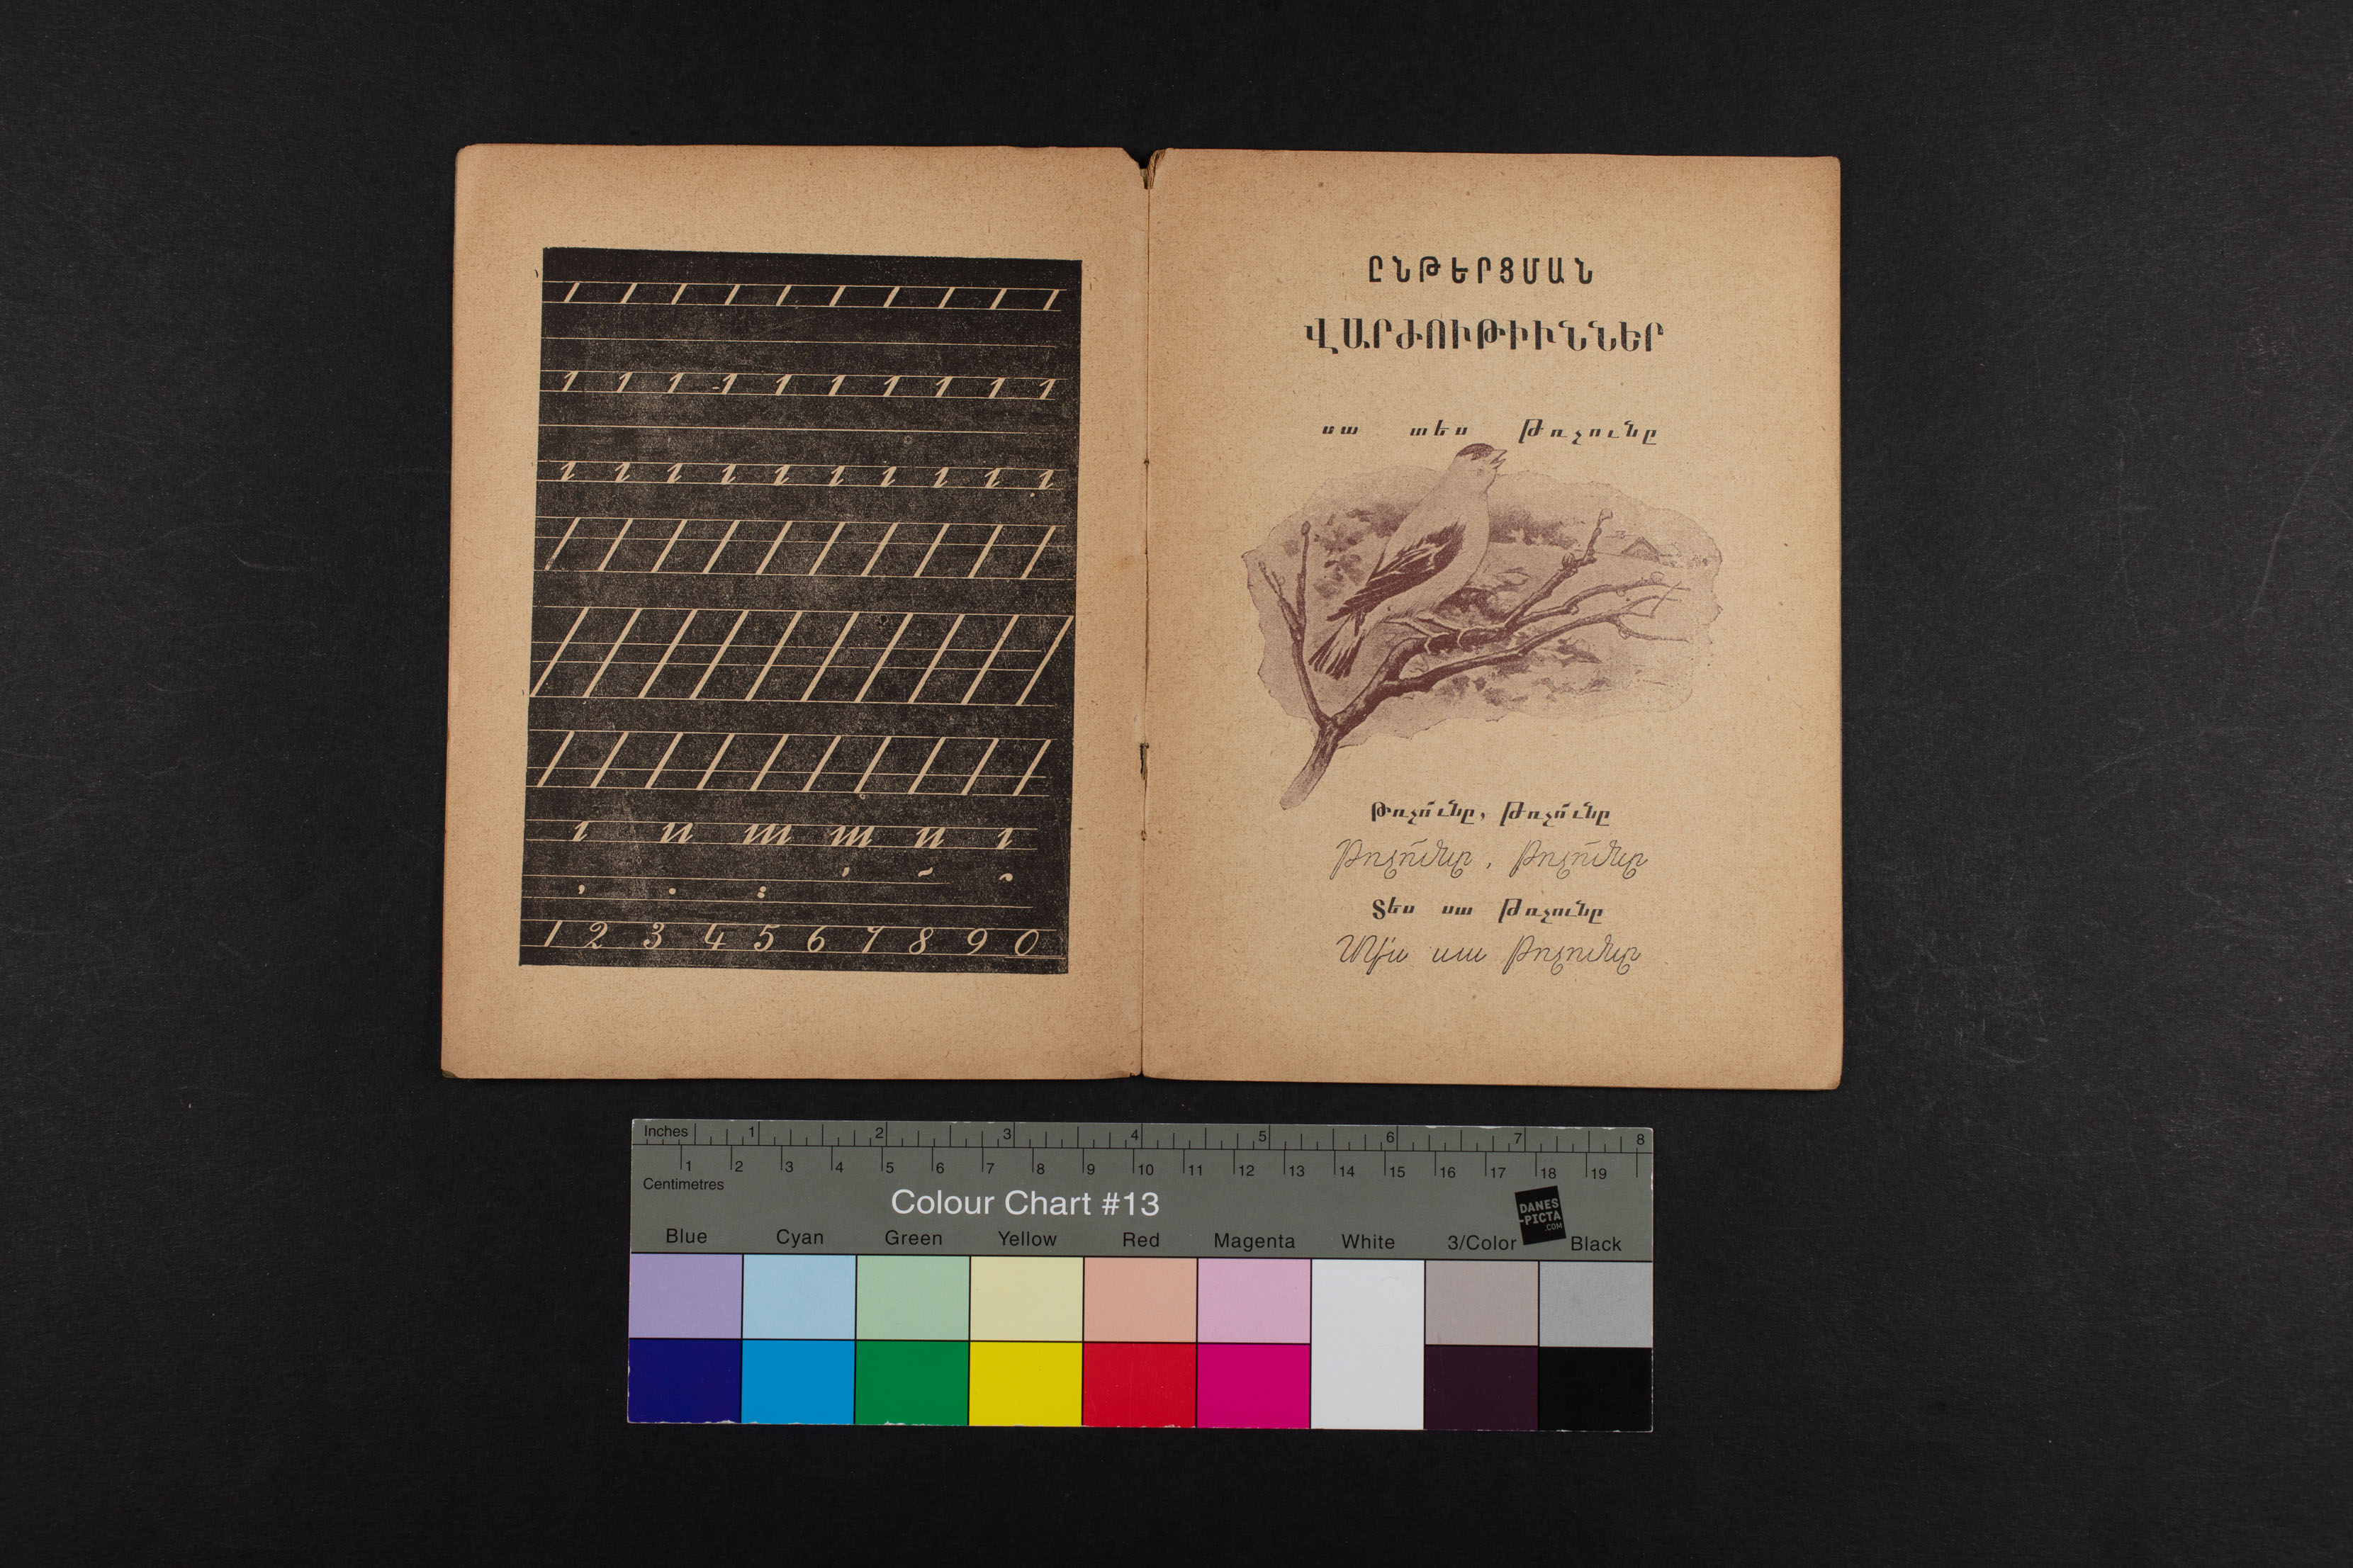 1 2 3 4 5 6 7 8 9 0
ԸՆԹԵՐՑՄԱՆ
ՎԱՐԺՈՒԹԻՒՆՆԵՐ
սա տես Թռչունը
Թռչո՜ւնը, Թռչո՜ւնը
Թռչո՜ւնը, Թռչո՜ւնը
Տես սա Թռչունը
Տես սա Թռչունը
Inches 1 2 3 4 5 6 7 8
1 2 3 4 5 6 7 8 9 10 11 12 13 14 15 16 17 18 19
Centimetres
Colour Chart #13
DANES
-PICTA
.COM
Blue Cyan Green Yellow Red Magenta White 3/Color Black